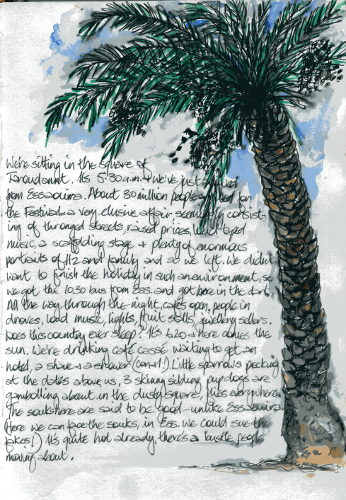 We're sitting in the square of
Taroudannt. It's 5:30 a.m. & we've just
from Essaouira. About 30 million people for
the Festival - a very elusive affair seemingly consist-
ing of thronged streets, raised prices,
music, a scaffolding stage & plenty of enormous
portraits of M2 and family and so we left. We didn't
want to finish the holiday in such an environment, so
we got the 10.30 bus from Ess. and got here in the dark.
All the way through the night, cafés open, people in
droves, loud music, lights, fruit stalls, jewellery sellers.
Does this country ever sleep? It's 6.20 & here comes the
sun. We're drinking café cassé waiting to get an
hotel, a shave & a shower (can't!) Little sparrows pecking
at the dates above us, 3 skinny puppy dogs are
gambolling about in the dusty square, flies everywhere.
The souks here are said to be good - unlike Essaouira.
(Here we can face the souks, in Ess. we could sue the
fakes!) It's quite hot already, there's a bustle, people
moving about.